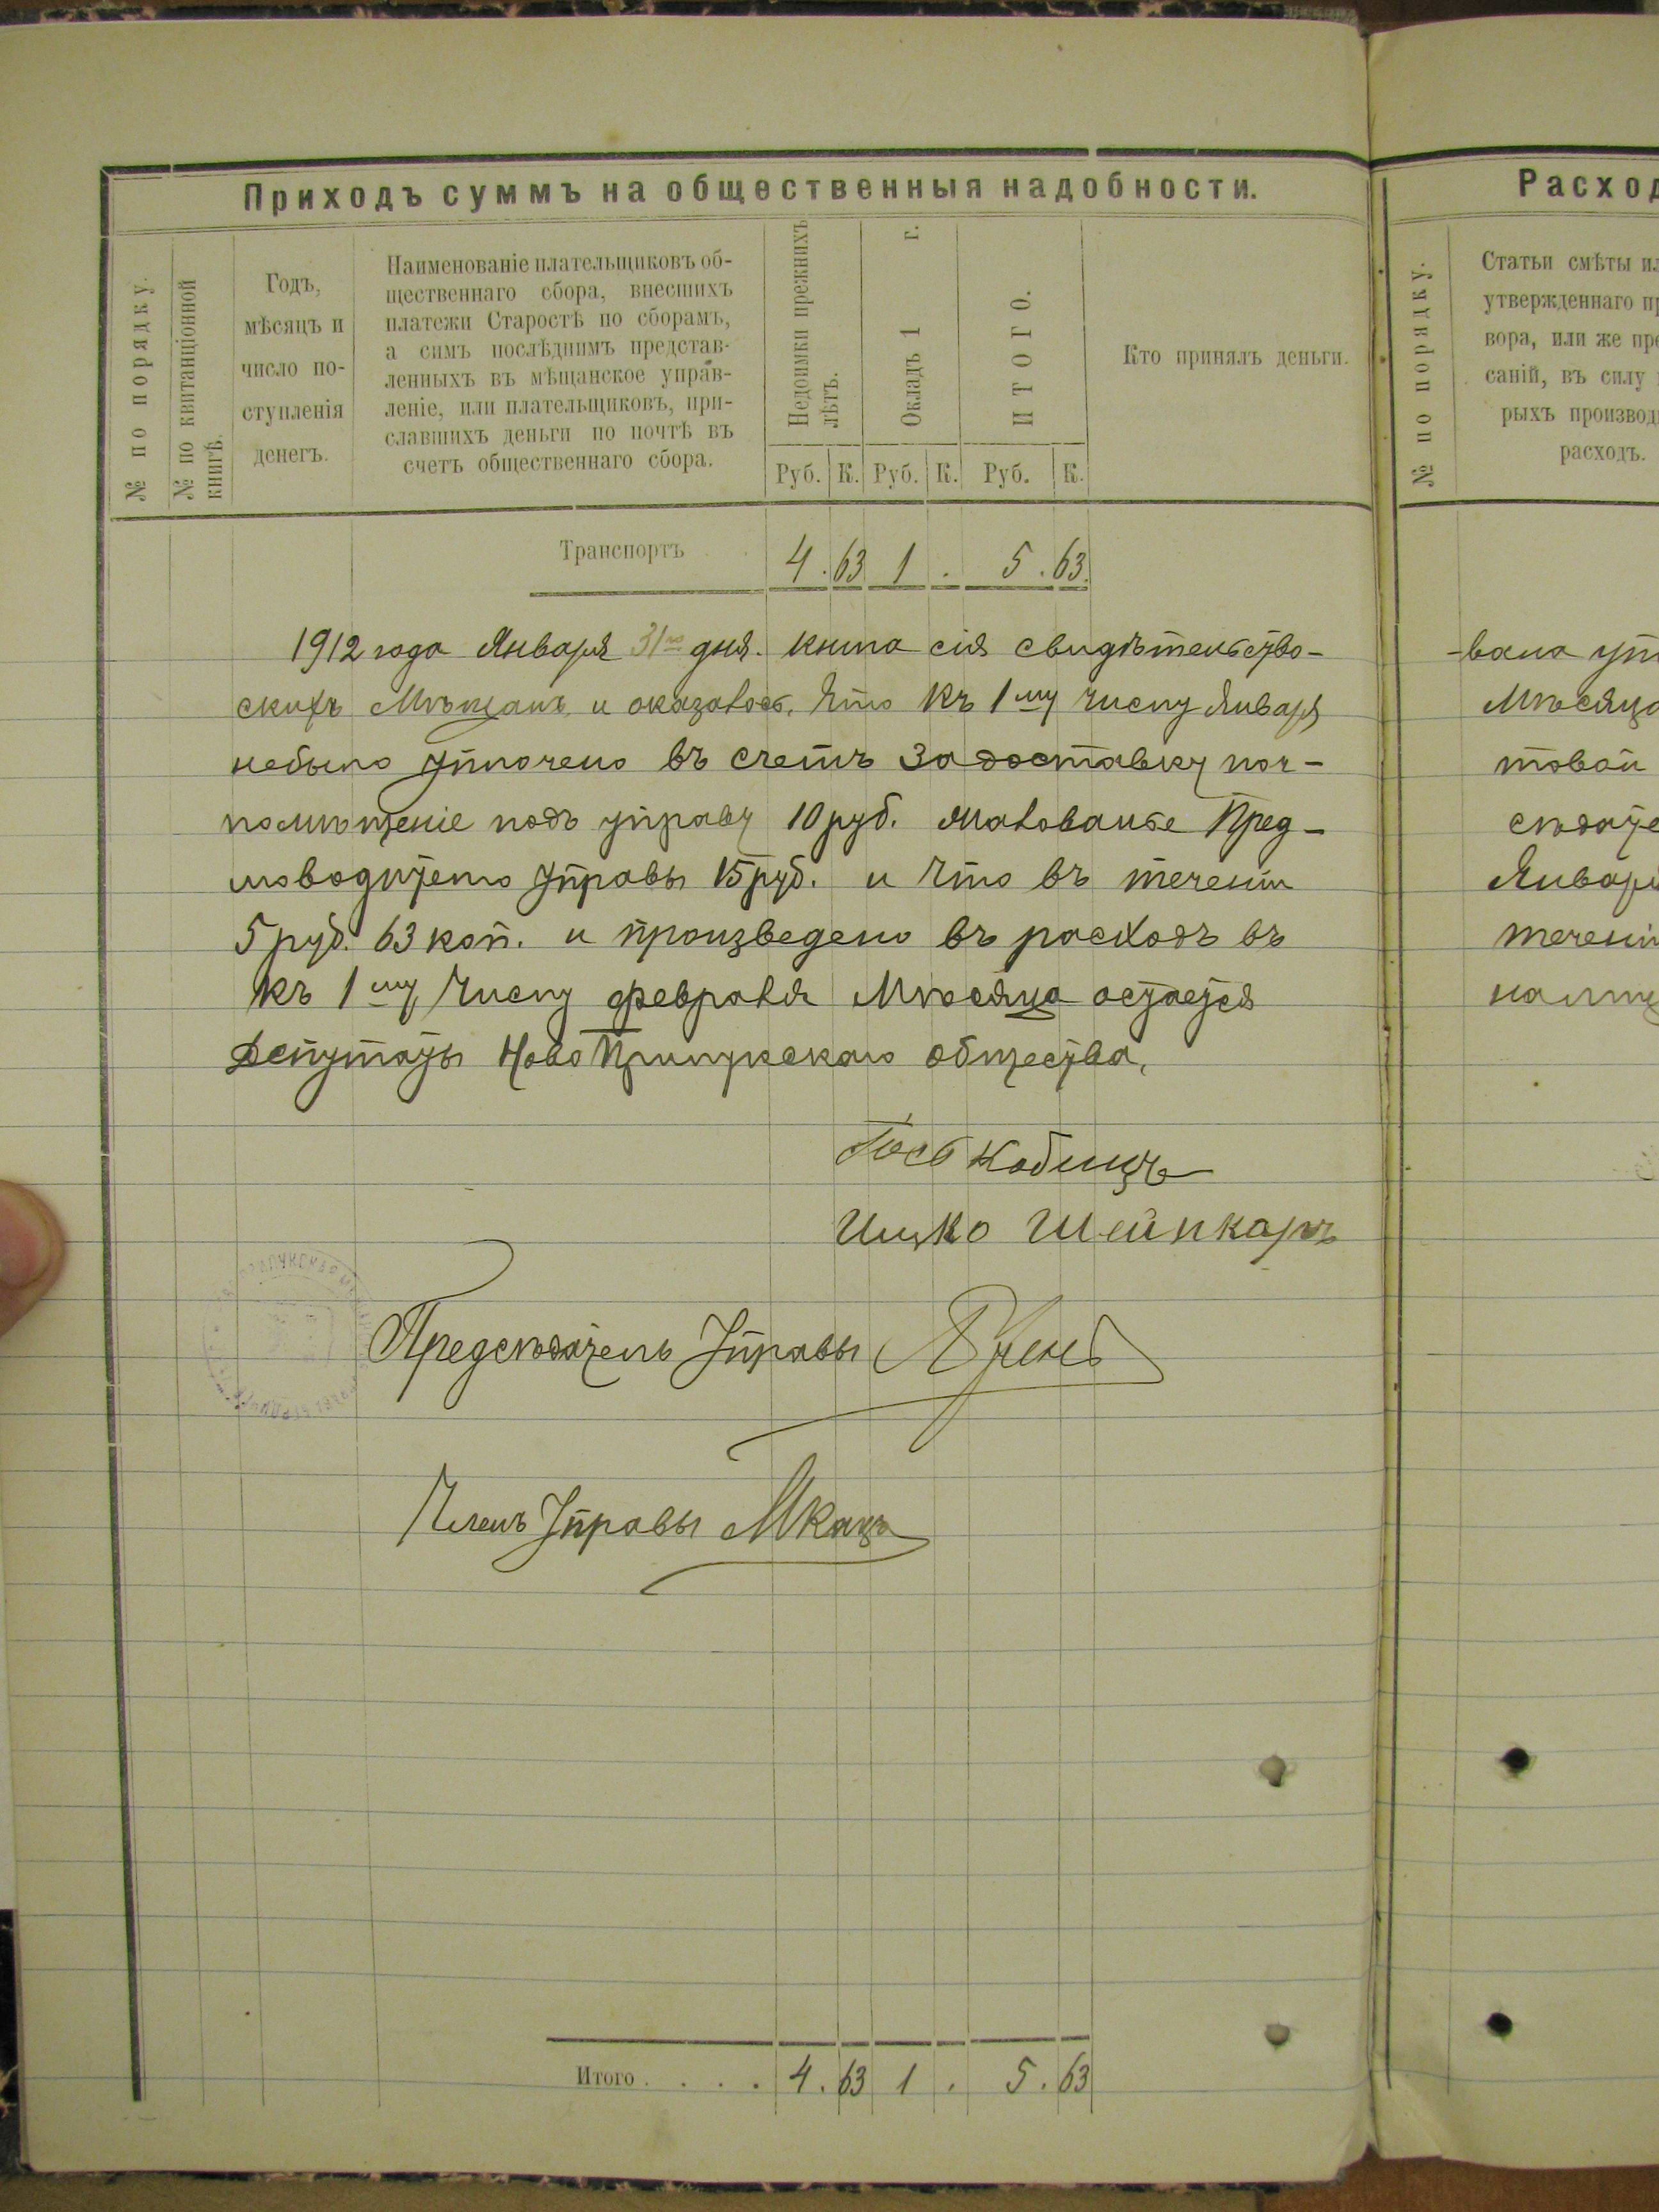 Приходъ суммъ на общественныя надобности.
№ по порядку.
№ по квитанціонной
книгѣ.
Годъ,
мѣсяцъ и
число по-
ступленія
денегъ.
Наименованіе плательщиковъ об-
щественнаго сбора, внесшихъ
платежи Старостѣ по сборамъ,
а симъ послѣднимъ представ-
ленныхъ въ мѣщанское управ-
леніе, или плательщиковъ, при-
славшихъ деньги по почтѣ въ
счетъ общественнаго сбора.
Недоимки прежнихъ
лѣтъ.
Окладъ 1 г.
ИТОГО.
Руб. К. Руб. К. Руб. К.
Кто принялъ деньги.
Транспортъ 4. 63 1 . 5. 63.
1912 года Января 31го дня. книга сія свидѣтельство-
скихъ Мѣщанъ и оказалось, что къ 1му числу Января
небыло уплочено въ счетъ за доставку поч-
помѣщеніе подъ управу 10 руб. жалованье Пред-
изводителю Управы 15 руб. и что въ теченіи
5 руб. 63 коп. и произведено въ расходъ въ
къ 1му числу февраля Мѣсяца остается
Депутаты Ново Прилукскаго общества,
Ицко Шейнкаръ
Предсѣдатель Управы
Членъ Управы МКацъ
Итого . . . . 4. 63 1 . 5. 63
Расход
№ по порядку.
Статьи смѣты ил
утвержденнаго пр
вора, или же пре
саній, въ силу
рыхъ производ
расходъ.
-вана уп
Мѣсяца
товой
сѣдате
Января
теченіи